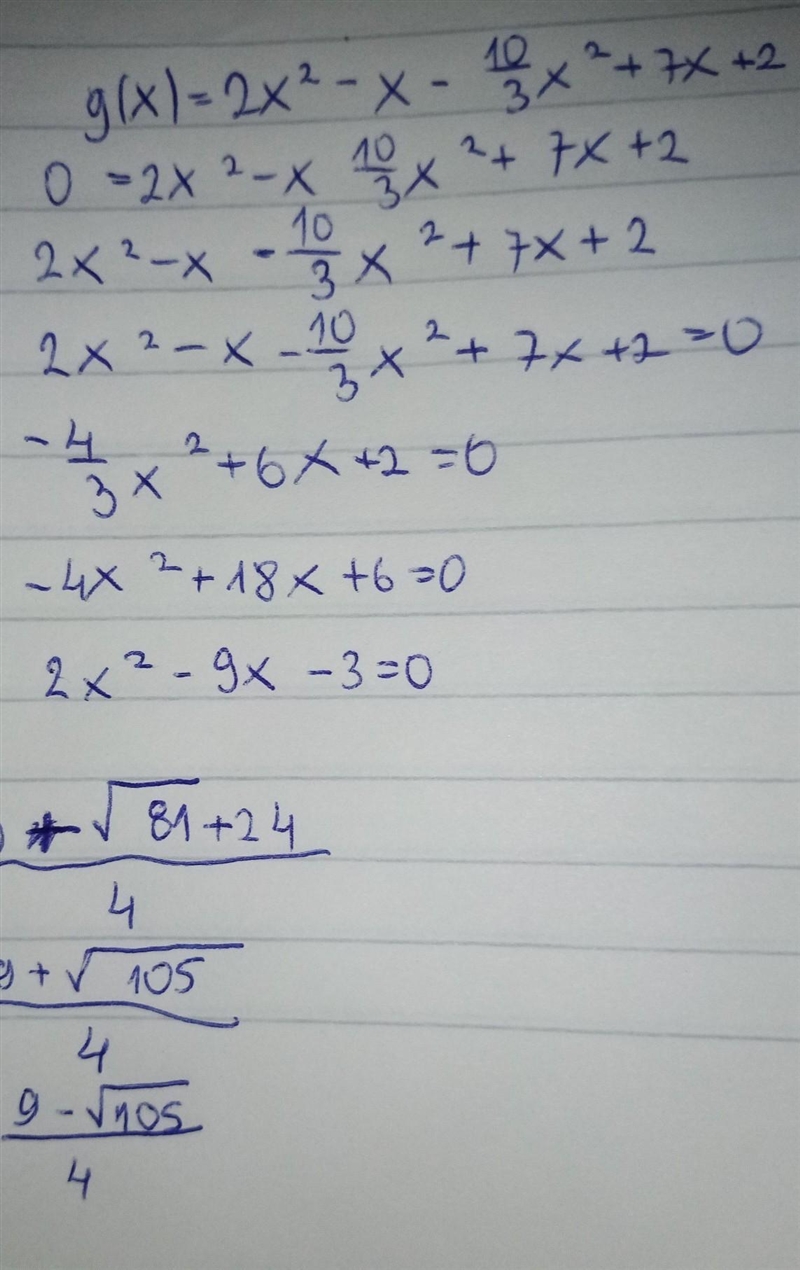 g(x) = 2x² - x - 10/3 x² + 7x + 2
0 = 2x² - x 10/3 x² + 7x + 2
2x² - x - 10/3 x² + 7x + 2
2x² - x - 10/3 x² + 7x + 2 = 0
-4/3 x² + 6x + 2 = 0
-4x² + 18x + 6 = 0
2x² - 9x - 3 = 0
√81 + 24
4
9 + √105
4
9 - √105
4